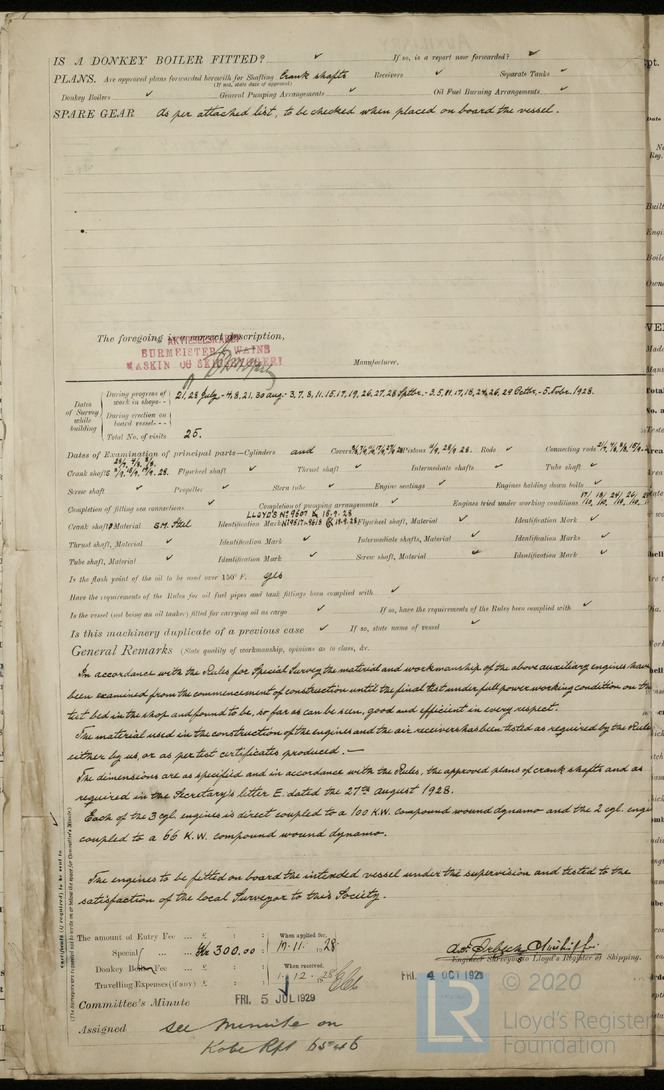 IS A DONKEY BOILER FITTED? ✓ If so, is a report now forwarded? ✓
PLANS. Are approved plans forwarded herewith for Shafting Crank shafts Receivers ✓ Separate Tanks ✓
(If not, state date of approval)
Donkey Boilers ✓ General Pumping Arrangements ✓ Oil Fuel Burning Arrangements ✓
SPARE GEAR As per attached list, to be checked when placed on board the vessel.
The foregoing is a correct description,
AKTIESELSKABET
BURMEISTER & WAINS
MASKIN OG SKIBSBYGGERI
Manufacturer.
Dates of Survey while building
During progress of work in shops -- 21, 28 July - 4, 8, 21, 30 aug - 3, 7, 8, 11, 15, 17, 19, 26, 27, 28 Sptbr. - 3, 5, 11, 17, 18, 24, 26, 29 Octbr. - 5 Novbr. 1928.
During erection on board vessel ---
Total No. of visits 25.
Dates of Examination of principal parts—Cylinders and Covers Pistons Rods ✓ Connecting rods
Crank shafts Flywheel shaft ✓ Thrust shaft ✓ Intermediate shafts ✓ Tube shaft ✓
Screw shaft ✓ Propeller ✓ Stern tube ✓ Engine seatings ✓ Engines holding down bolts ✓
Completion of fitting sea connections ✓ Completion of pumping arrangements ✓ Engines tried under working conditions
LLOYD'S No 9607
Crank shafts Material S.M. Steel Identification Mark Flywheel shaft, Material ✓ Identification Mark ✓
Thrust shaft, Material ✓ Identification Mark ✓ Intermediate shafts, Material ✓ Identification Marks ✓
Tube shaft, Material ✓ Identification Mark ✓ Screw shaft, Material ✓ Identification Mark ✓
Is the flash point of the oil to be used over 150° F. yes
Have the requirements of the Rules for oil fuel pipes and tank fittings been complied with ✓
Is the vessel (not being an oil tanker) fitted for carrying oil as cargo ✓ If so, have the requirements of the Rules been complied with ✓
Is this machinery duplicate of a previous case ✓ If so, state name of vessel ✓
General Remarks (State quality of workmanship, opinions as to class, &c.
In accordance with the Rules for Special Survey the material and workmanship of the above auxiliary engines have
been examined from the commencement of construction until the final test under full power working condition on the
test bed in the shop and found to be, so far as can be seen, good and efficient in every respect.
The material used in the construction of the engines and the air receivers has been tested as required by the Rules
either by us, or as per test certificates produced. —
The dimensions are as specified and in accordance with the Rules, the approved plans of crank shafts and as
required in the Secretary's letter E. dated the 27th August 1928.
Each of the 3 cyl. engines is direct coupled to a 100 K.W. compound wound dynamo and the 2 cyl. engi
coupled to a 66 K.W. compound wound dynamo.
The engines to be fitted on board the intended vessel under the supervision and tested to the
satisfaction of the local Surveyor to this Society.
The amount of Entry Fee ... £ : : When applied for,
Special ... Kr 300.00 : 17.11.1928
Donkey Boiler Fee ... £ : : When received,
Travelling Expenses (if any) £ : : 1.12.1928
Engineer Surveyor to Lloyd's Register of Shipping.
Committee's Minute FRI. 5 JUL 1929 FRI. 4 OCT 1929
Assigned see minute on
Kobe Rpt
© 2020
LR
Lloyd's Register
Foundation